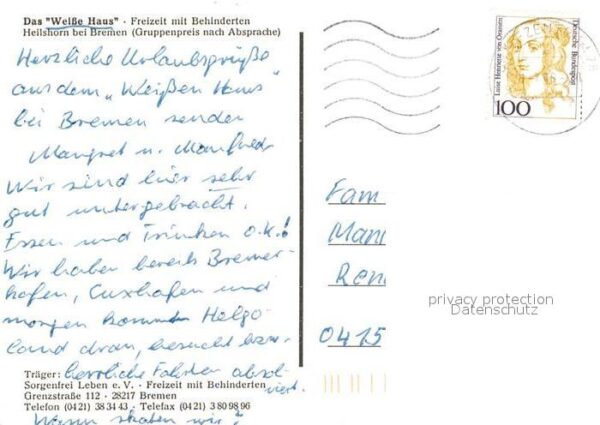 Das "Weiße Haus" · Freizeit mit Behinderten
Heilshorn bei Bremen (Gruppenpreis nach Absprache)
Herzliche Urlaubsgrüße
aus dem „Weißen Haus"
bei Bremen senden
Margret u. Manfred
Wir sind hier sehr
gut untergebracht.
Essen und Trinken o.k.!
Wir haben bereits Bremer-
hafen, Cuxhafen und
morgen kommt Helgo-
land dran, besucht bzw.
herrliche Fahrten absol-
viert.
Träger:
Sorgenfrei Leben e. V. · Freizeit mit Behinderten
Grenzstraße 112 · 28217 Bremen
Telefon (04 21) 38 34 43 · Telefax (04 21) 3 80 98 96
Wann haben wir?
Luise Henriette von Oranien
Deutsche Bundespost
100
Fam
Mani
Ren
0415
privacy protection
Datenschutz